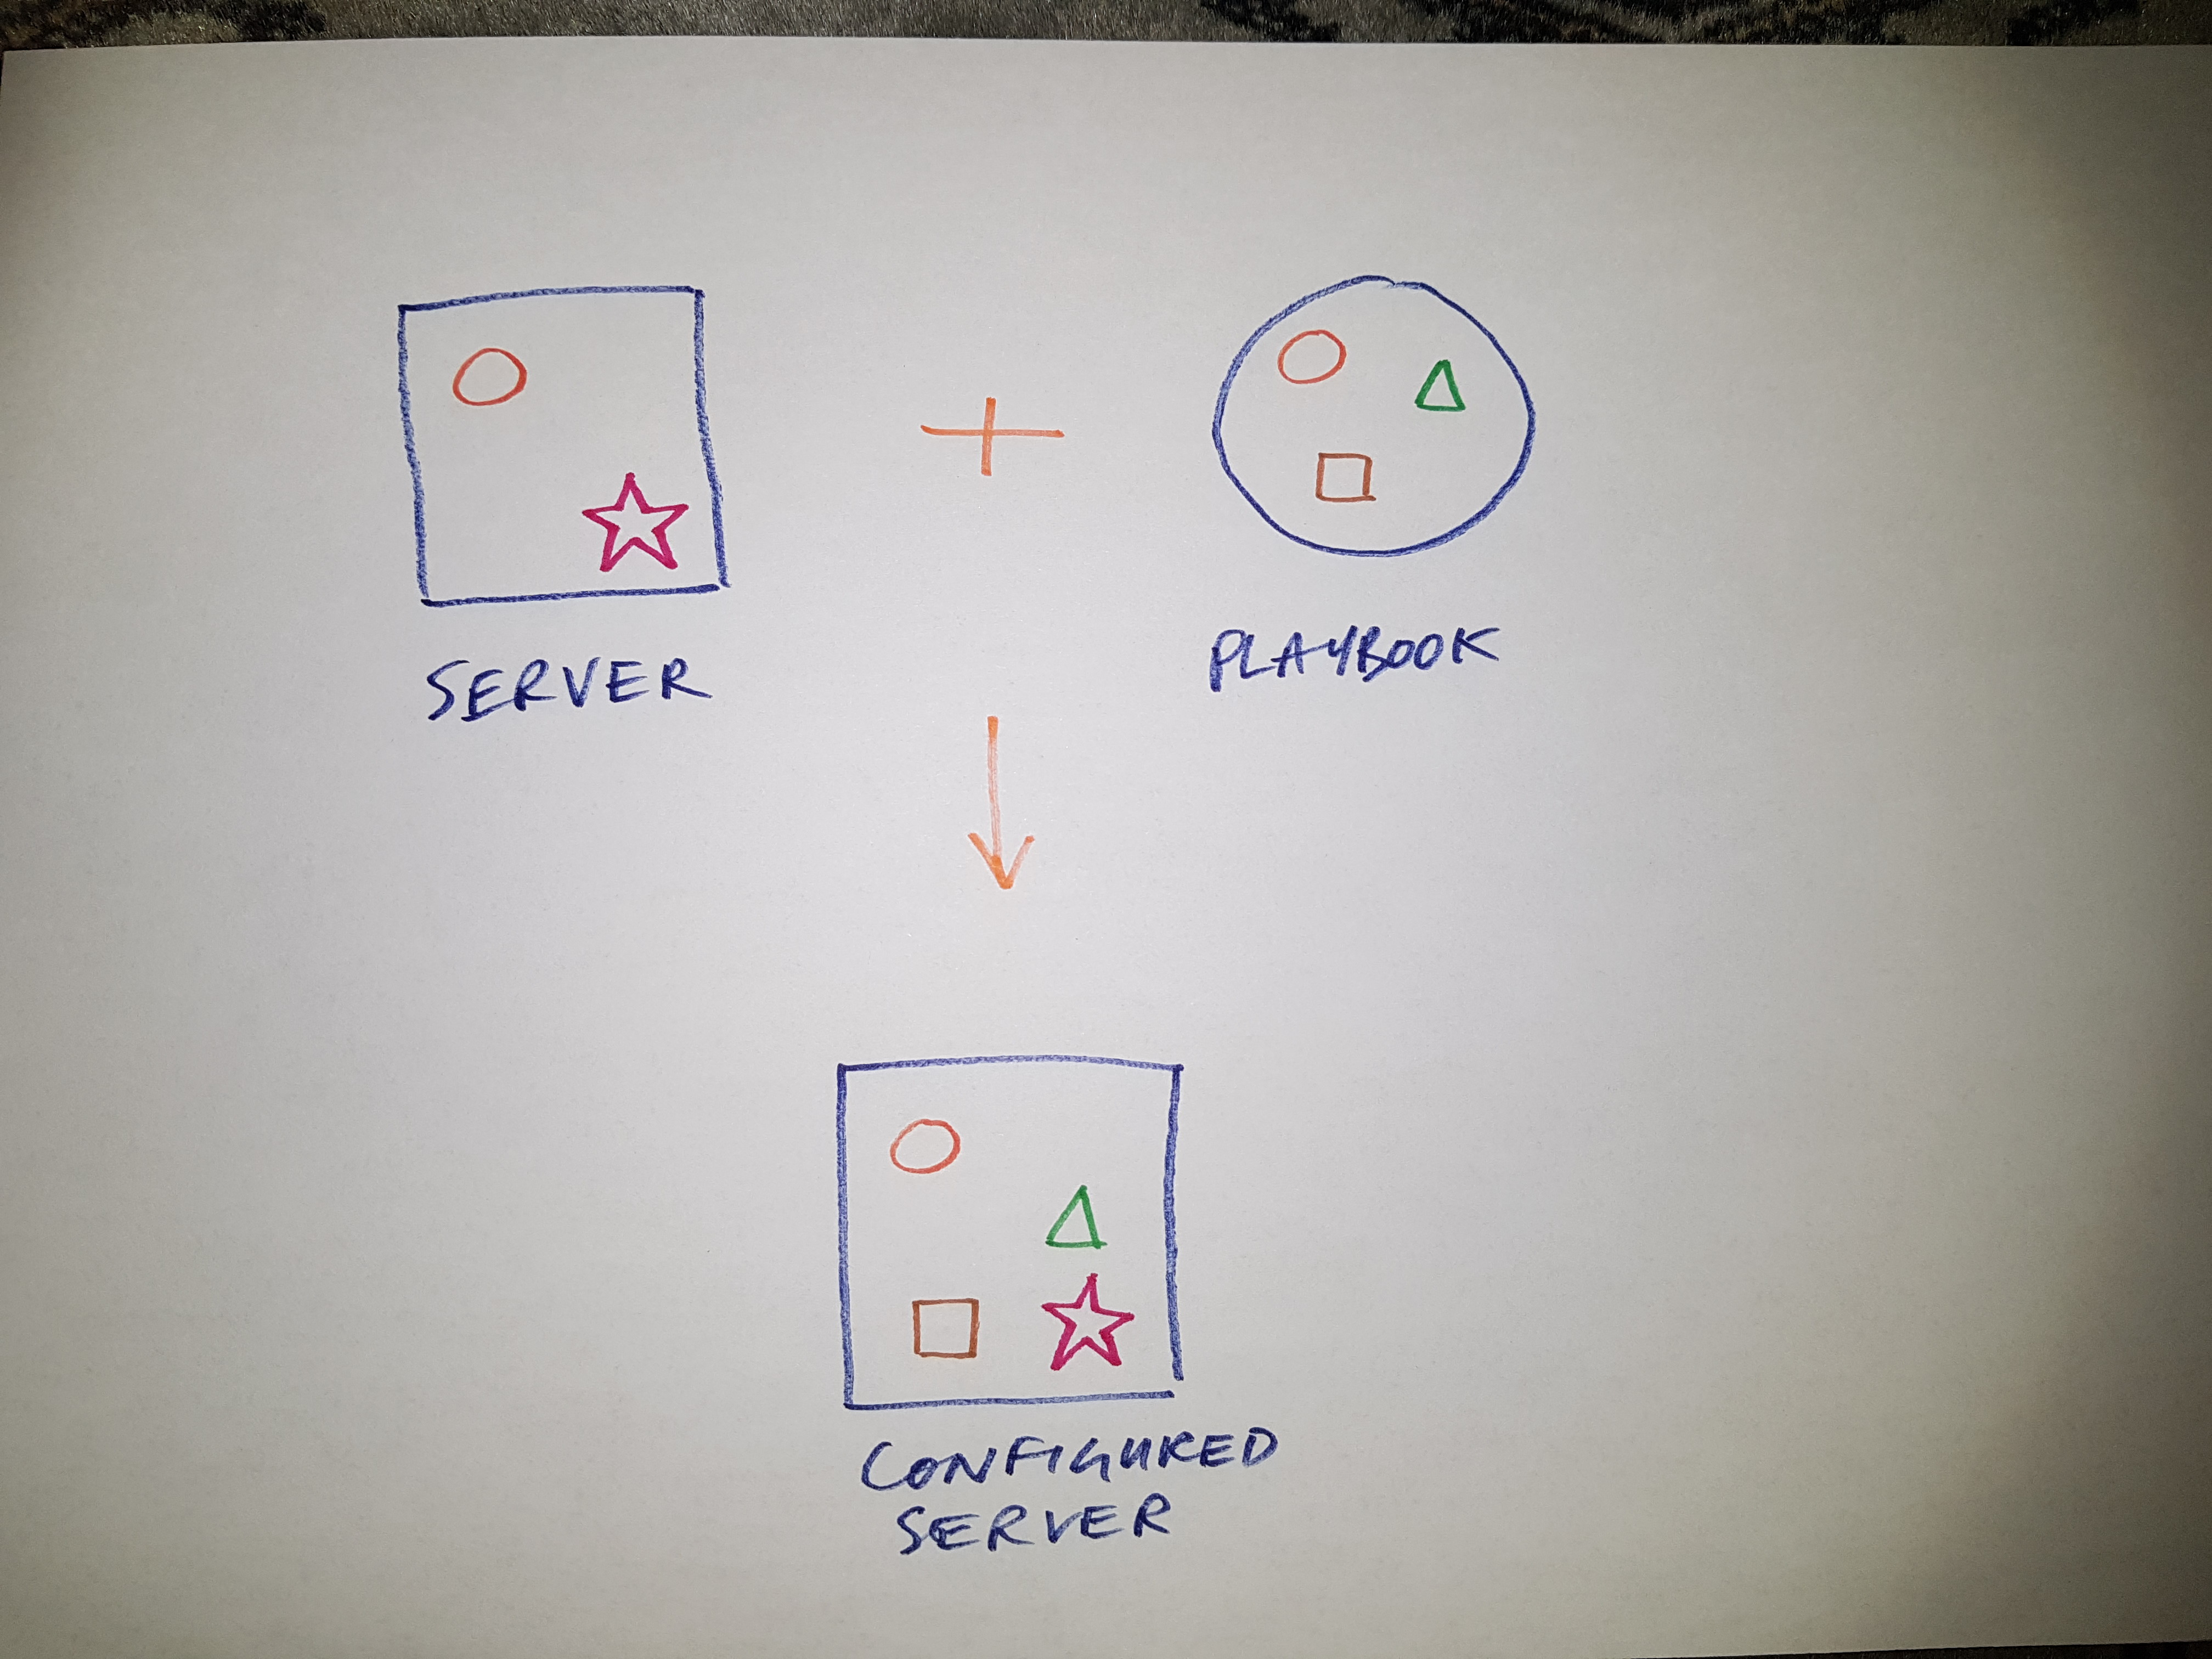 SERVER
PLAYBOOK
CONFIGURED
SERVER